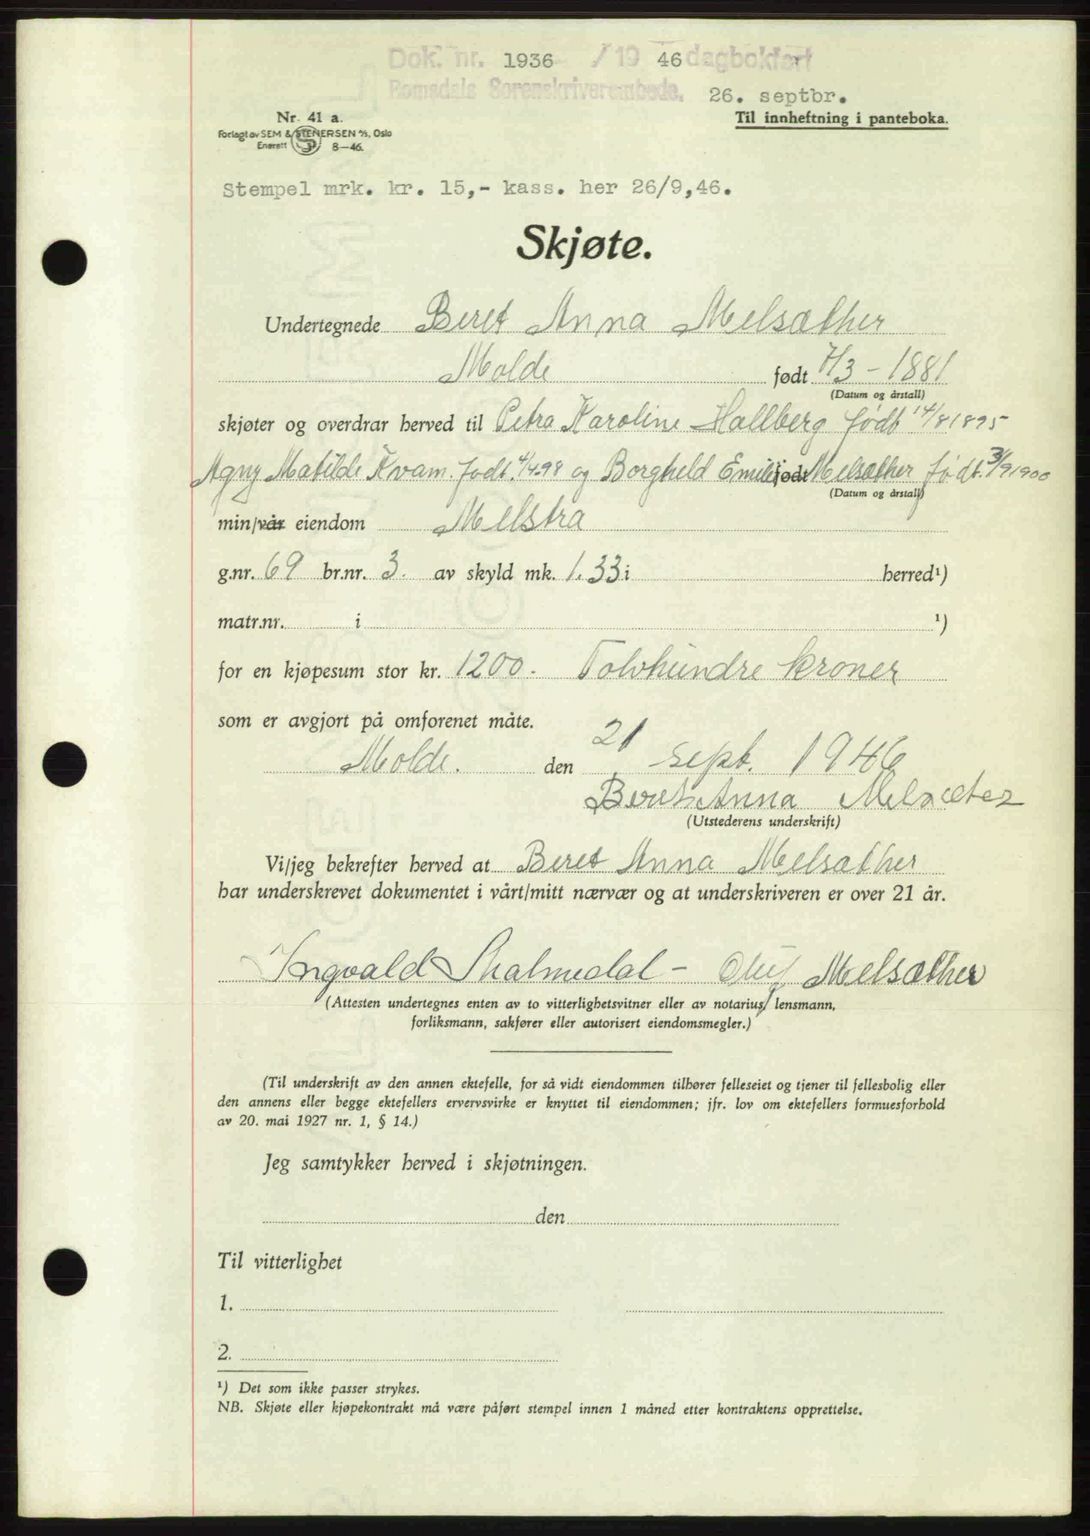 Dok. nr. 1936 / 1946 dagbokført
Romsdals Sorenskriverembede. 26. septbr.
Nr. 41 a. Til innheftning i panteboka.
Forlagt av SEM & STENERSEN A/S, Oslo
Enerett 8-46.
Stempel mrk. kr. 15,- kass. her 26/9,46.
Skjøte.
Undertegnede Beret Anna Melsæther
Molde født 7/3 - 1881
(Datum og årstall)
skjøter og overdrar herved til Petra Karoline Hallberg født 14/8 1895
Agny Matilde Kvam. født. 4/4 98 og Borghild Emilie født Melsæther født. 3/9 1900
(Datum og årstall)
min/vår eiendom Melstra
g.nr. 69 br.nr. 3. av skyld mk. 1.33 i herred¹)
matr.nr. i ¹)
for en kjøpesum stor kr. 1200.- Tolvhundre kroner
som er avgjort på omforenet måte.
Molde. den 21 sept. 1946
Beret Anna Melsæter
(Utstederens underskrift)
Vi/jeg bekrefter herved at Beret Anna Melsæther
har underskrevet dokumentet i vårt/mitt nærvær og at underskriveren er over 21 år.
Ingvald Skalmedal - Oluf Melsæther
(Attesten undertegnes enten av to vitterlighetsvitner eller av notarius, lensmann,
forliksmann, sakfører eller autorisert eiendomsmegler.)
(Til underskrift av den annen ektefelle, for så vidt eiendommen tilhører felleseiet og tjener til fellesbolig eller
den annens eller begge ektefellers ervervsvirke er knyttet til eiendommen; jfr. lov om ektefellers formuesforhold
av 20. mai 1927 nr. 1, § 14.)
Jeg samtykker herved i skjøtningen.
den
Til vitterlighet
1.
2.
¹) Det som ikke passer strykes.
NB. Skjøte eller kjøpekontrakt må være påført stempel innen 1 måned etter kontraktens opprettelse.